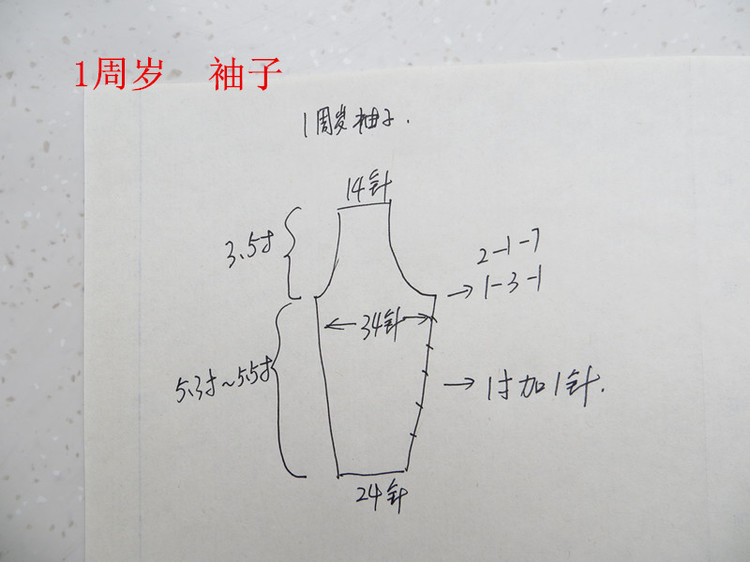 1周岁 袖子
1周岁袖子.
14针
3.5寸
2-1-7
1-3-1
34针
5.3寸~5.5寸
1寸加1针.
24针